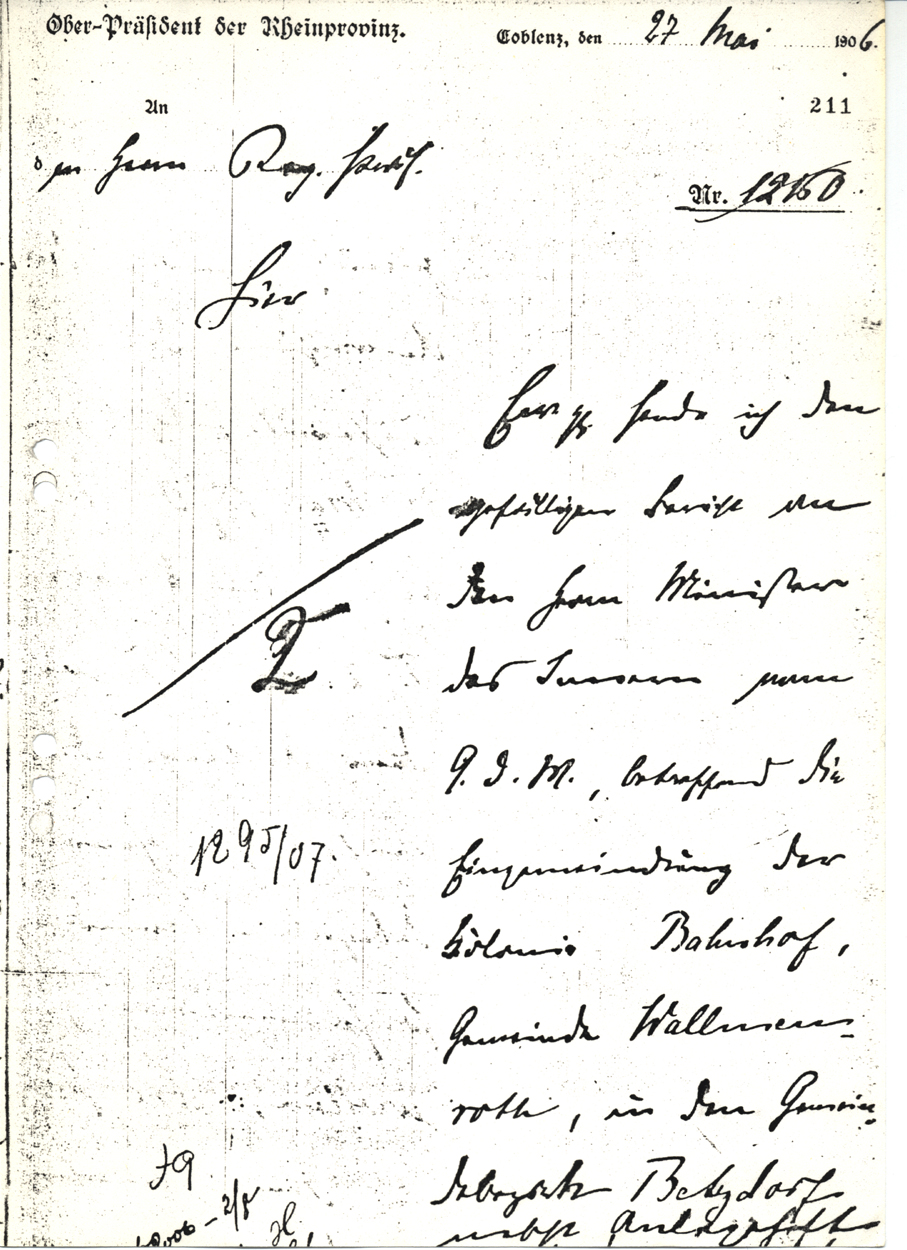 Ober-Präsident der Rheinprovinz.
Coblenz, den 27 Mai 1906.
An
211
den Herrn Reg. Präs.
Nr. 12150
Hier
Euer pp sende ich den
gefälligen Bericht an
den Herrn Minister
des Innern vom
9. d. M., betreffend die
Eingemeindung der
Kolonie Bahnhof,
Gemeinde Wallmen-
roth, in den Gemein-
debezirk Betzdorf
nebst
1295/07.